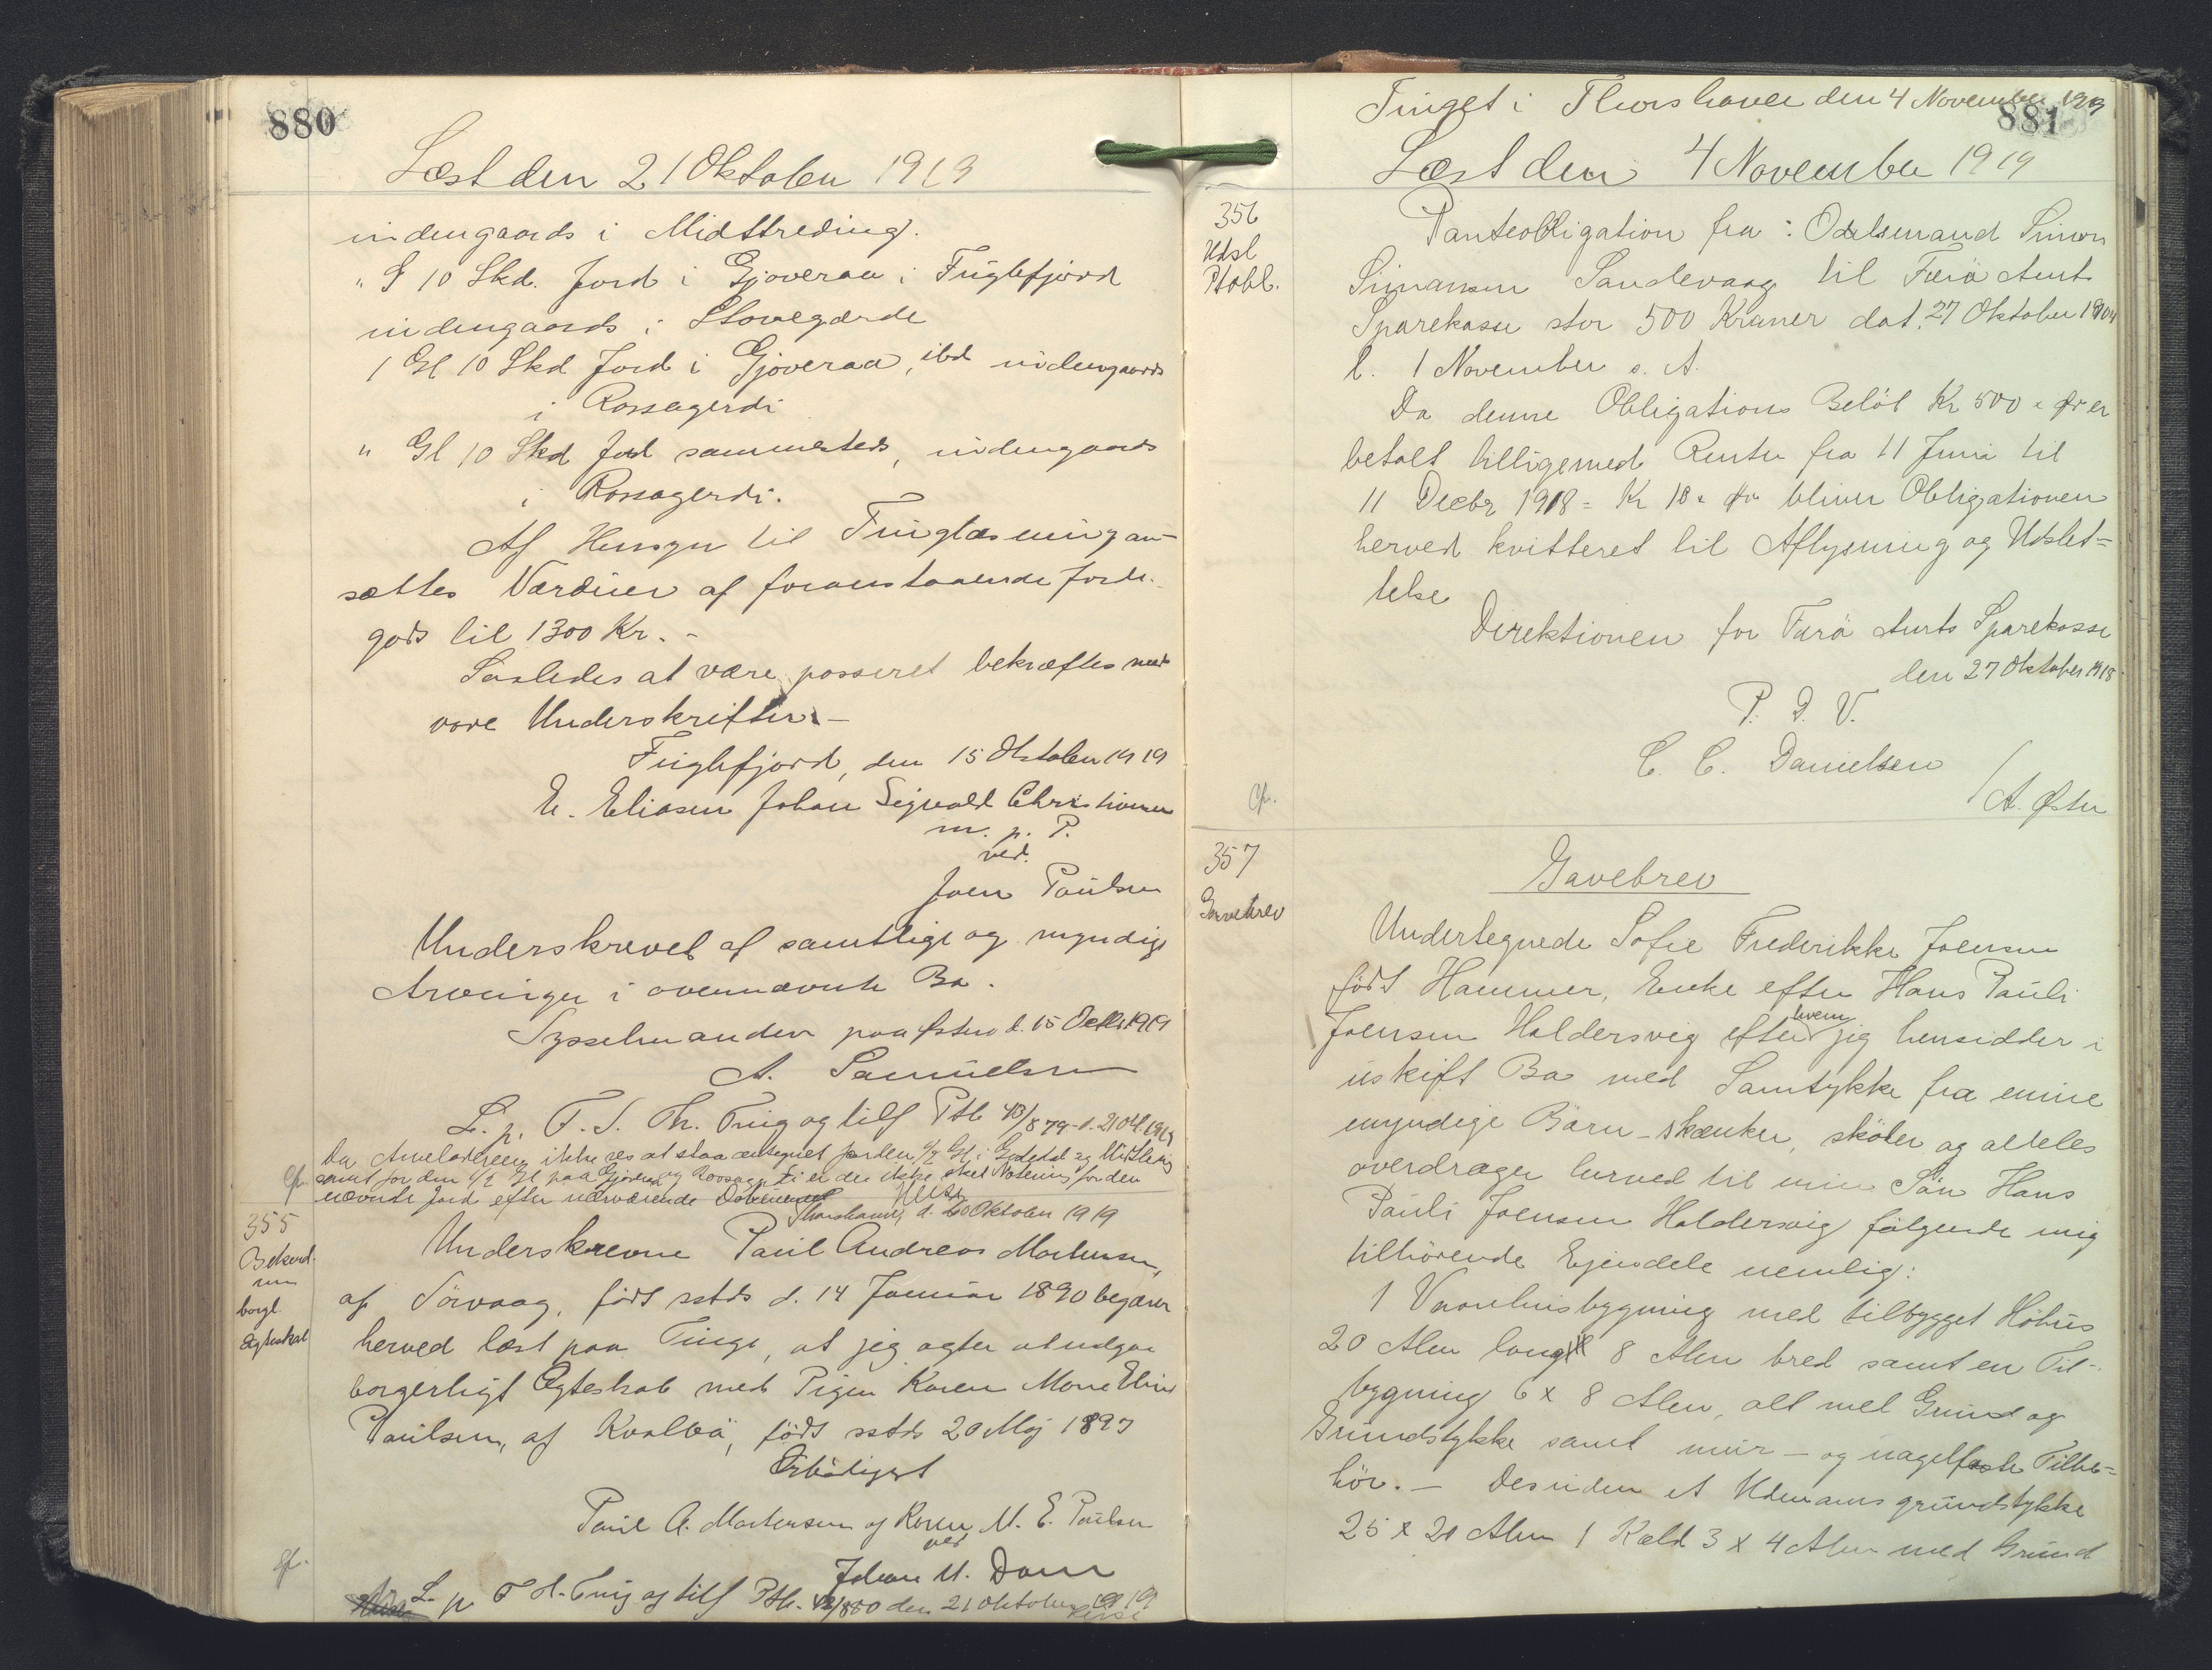 880
Læst den 21 Oktober 1919
indengaards i Midttreding.
" G 10 Skd. Jord i Gjoveraa i Fuglefjord
indengaards i Stovegærde
1 Gl 10 Skd Jord i Gjoveraa, ibd indengaards
i Rossagerdi
" Gl 10 Skd Jord sammesteds, indengaards
i Rossagerdi.
Af Hensyn til Tinglæsning an-
sættes Værdien af foranstaaende Jorde-
gods til 1300 Kr. -
Saaledes at være passeret bekræftes med
vore Underskrifter. -
Fuglefjord, den 15 Oktober 1919
E. Eliasen Johan Sigvald Christiansen
m. p. P.
ved.
Joen Paulsen
Underskrevet af samtlige og myndige
Arvinger i ovennævnte Bo.
Sysselmanden paa Østerø d. 15 Octbr 1919
A. Samuelsen
L. p. F. S. Th. Ting og tilf Ptb 43/879 d. 21 Okt 1919
Da ikke ses at staa antegnet for den 1/2 Gl i og
samt for den 1/2 Gl paa og er der ikke sket Notering for den
nævnte Jord efter nærværende Dokument
355
Thorshavn, d. 20 Oktober 1919
Bekend.
borgl.
Ægteskab
Underskrevne Paul Andreas Mortensen,
af Sörvaag, födt sstds d. 14 Januar 1890 begærer
herved læst paa Tinge, at jeg agter at indgaa
borgerligt Ægteskab med Pigen Karen Marie Elin
Paulsen, af Kvalbö, födt sstds 20 Maj 1897
Ærbödigst
Paul A. Mortensen og Karen M. E. Paulsen
ved
Johan M. Dam
L. p. F. S. Th. Ting og tilf Ptb. 42/880 den 21 Oktober 1919
881
Tinget i Thorshavn den 4 November 1919
Læst den 4 November 1919
356
Udsl
Ptobl.
Panteobligation fra: Odelsmand Simon
Simonsen Sandevaag til Færö Amts
Sparekasse stor 500 Kroner dat. 27 Oktober 1904
l. 1 November s. A.
Da denne Obligations Belöb Kr 500 " Ør er
betalt tilligemed Renter fra 11 Juni til
11 Decbr 1918 = Kr 10 " Ør bliver Obligationen
herved kvitteret til Aflysning og Udslet-
telse
Direktionen for Færö Amts Sparekasse
den 27 Oktober 1918.
P. D. V.
C. C. Danielsen
/ A. Øster
cfr.
357
Gavebrev
Gavebrev
Undertegnede Sofie Frederikke Joensen
födt Hammer, Enke efter Hans Pauli
Joensen Haldersvig efter hvem jeg hensidder i
uskift Bo med Samtykke fra mine
myndige Börn - skænker, sköter og aldeles
overdrager herved til min Sön Hans
Pauli Joensen Haldersvig fölgende mig
tilhörende Ejendele nemlig:
1 Vaanehusbygning med tilbygget Höhus
20 Alen lang 8 Alen bred samt en Til-
bygning 6 x 8 Alen, alt med Grund og
Grundstykke samt mur- og nagelfaste Tilbe-
hör. - Desuden et Udemarksgrundstykke
25 x 20 Alen 1 Kæld 3 x 4 Alen med Grund